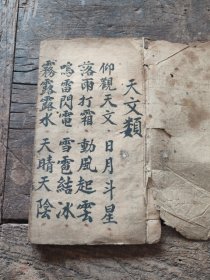 天文類
仰觀天文 日月斗星
落雨打霜 動風起雲
鳴雷閃電 雪雹結冰
霧露露水 天晴天陰